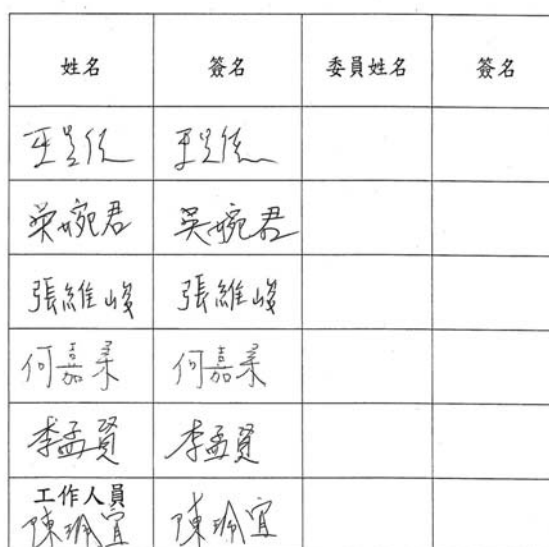 姓名 簽名 委員姓名 簽名
吳婉君 吳婉君
張維峻 張維峻
何嘉柔 何嘉柔
李孟賢 李孟賢
工作人員
陳珮宜 陳珮宜